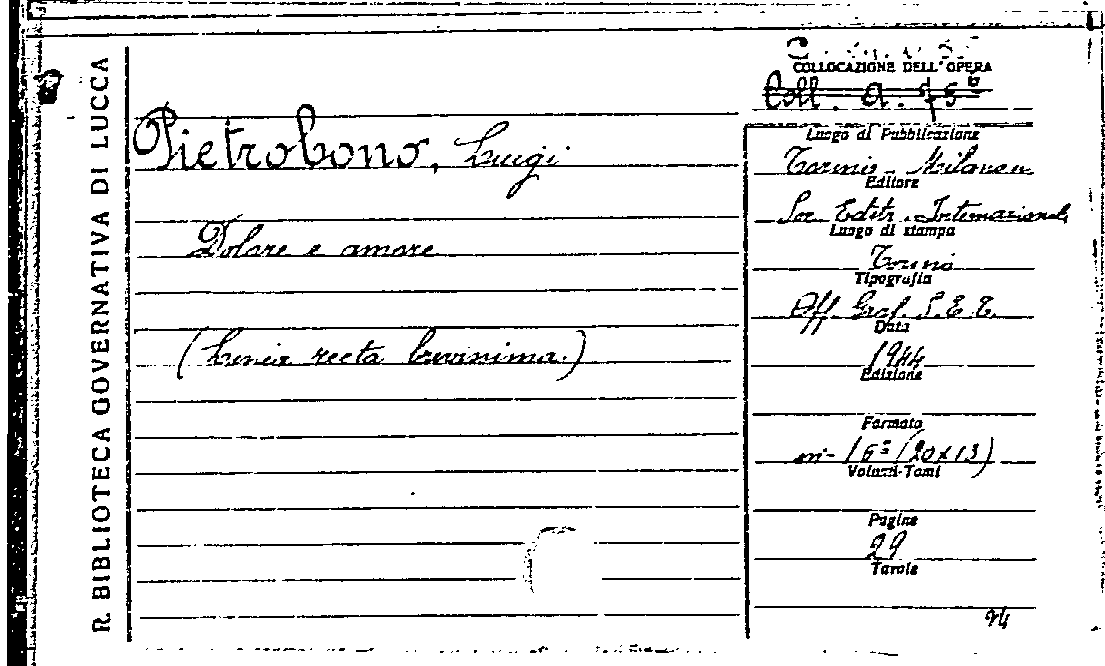 R. BIBLIOTECA GOVERNATIVA DI LUCCA
Pietrobono, Luigi
Dolore e amore
(Linea recta brevissima.)
COLLOCAZIONE DELL'OPERA
Coll. a. 75
Luogo di Pubblicazione
Torino - Milano
Editore
Soc. Editr. Internazionale
Luogo di stampa
Torino
Tipografia
Off. Graf. S.E.T.
Data
1944
Edizione
Formato
in-16º (20x13)
Volumi-Tomi
Pagine
29
Tavole